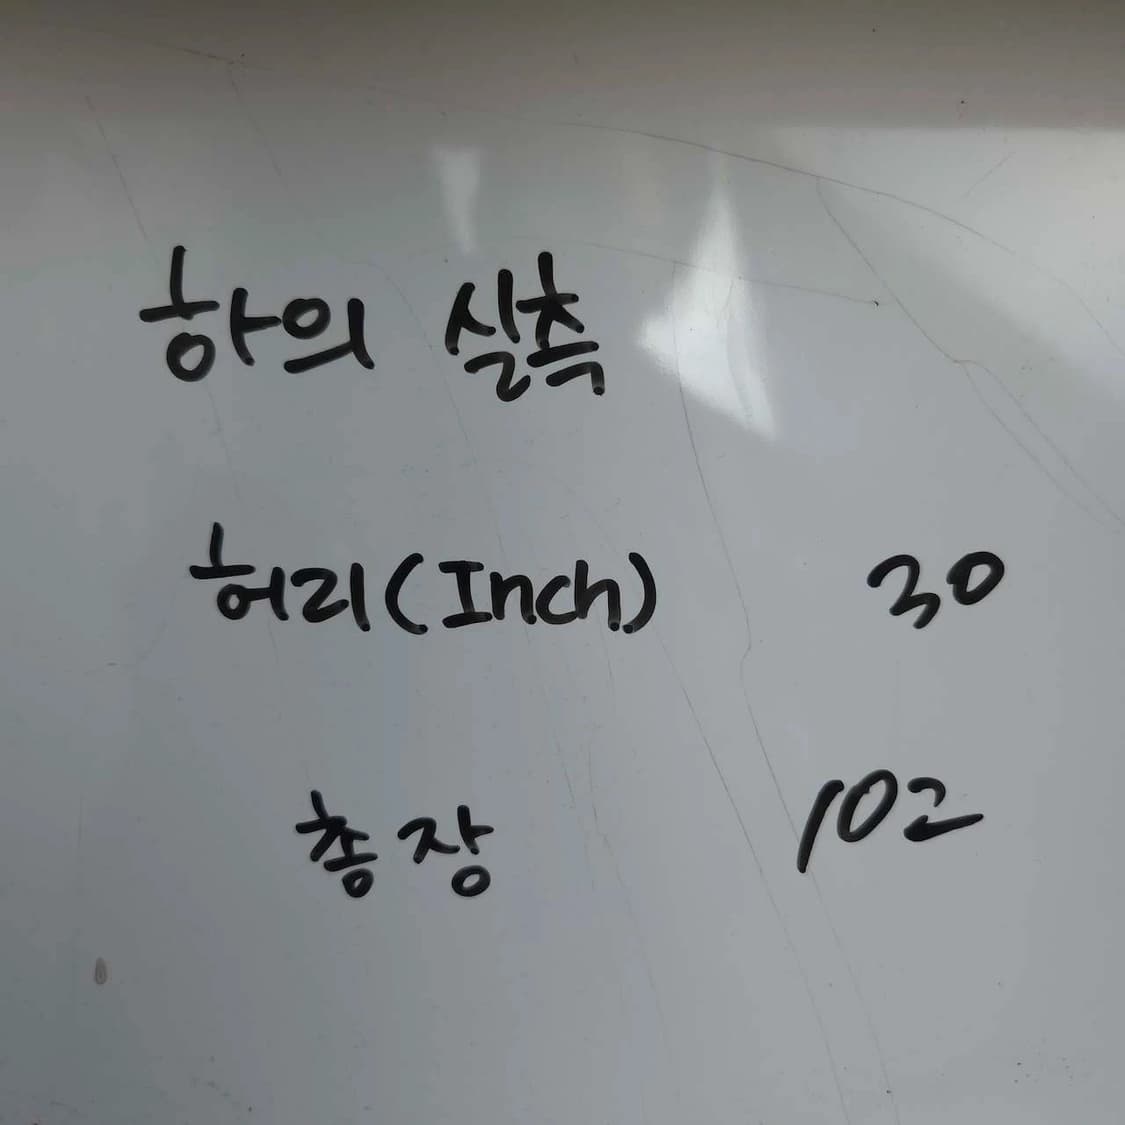 하의 실측
허리(Inch) 30
총장 102